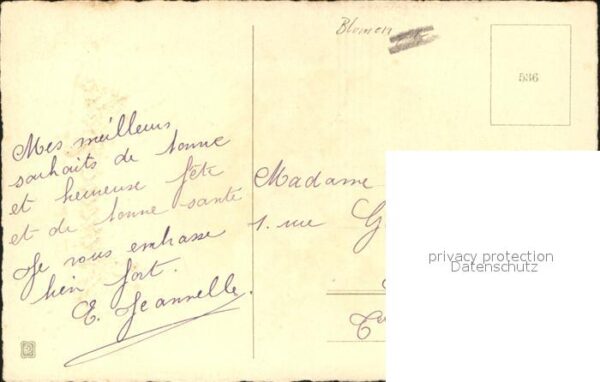 Blumen
536
Mes meilleurs
souhaits de bonne
et heureuse fête
et de bonne santé
Je vous embrasse
bien fort.
E. Jeannelle.
Madame
1. rue
privacy protection
Datenschutz